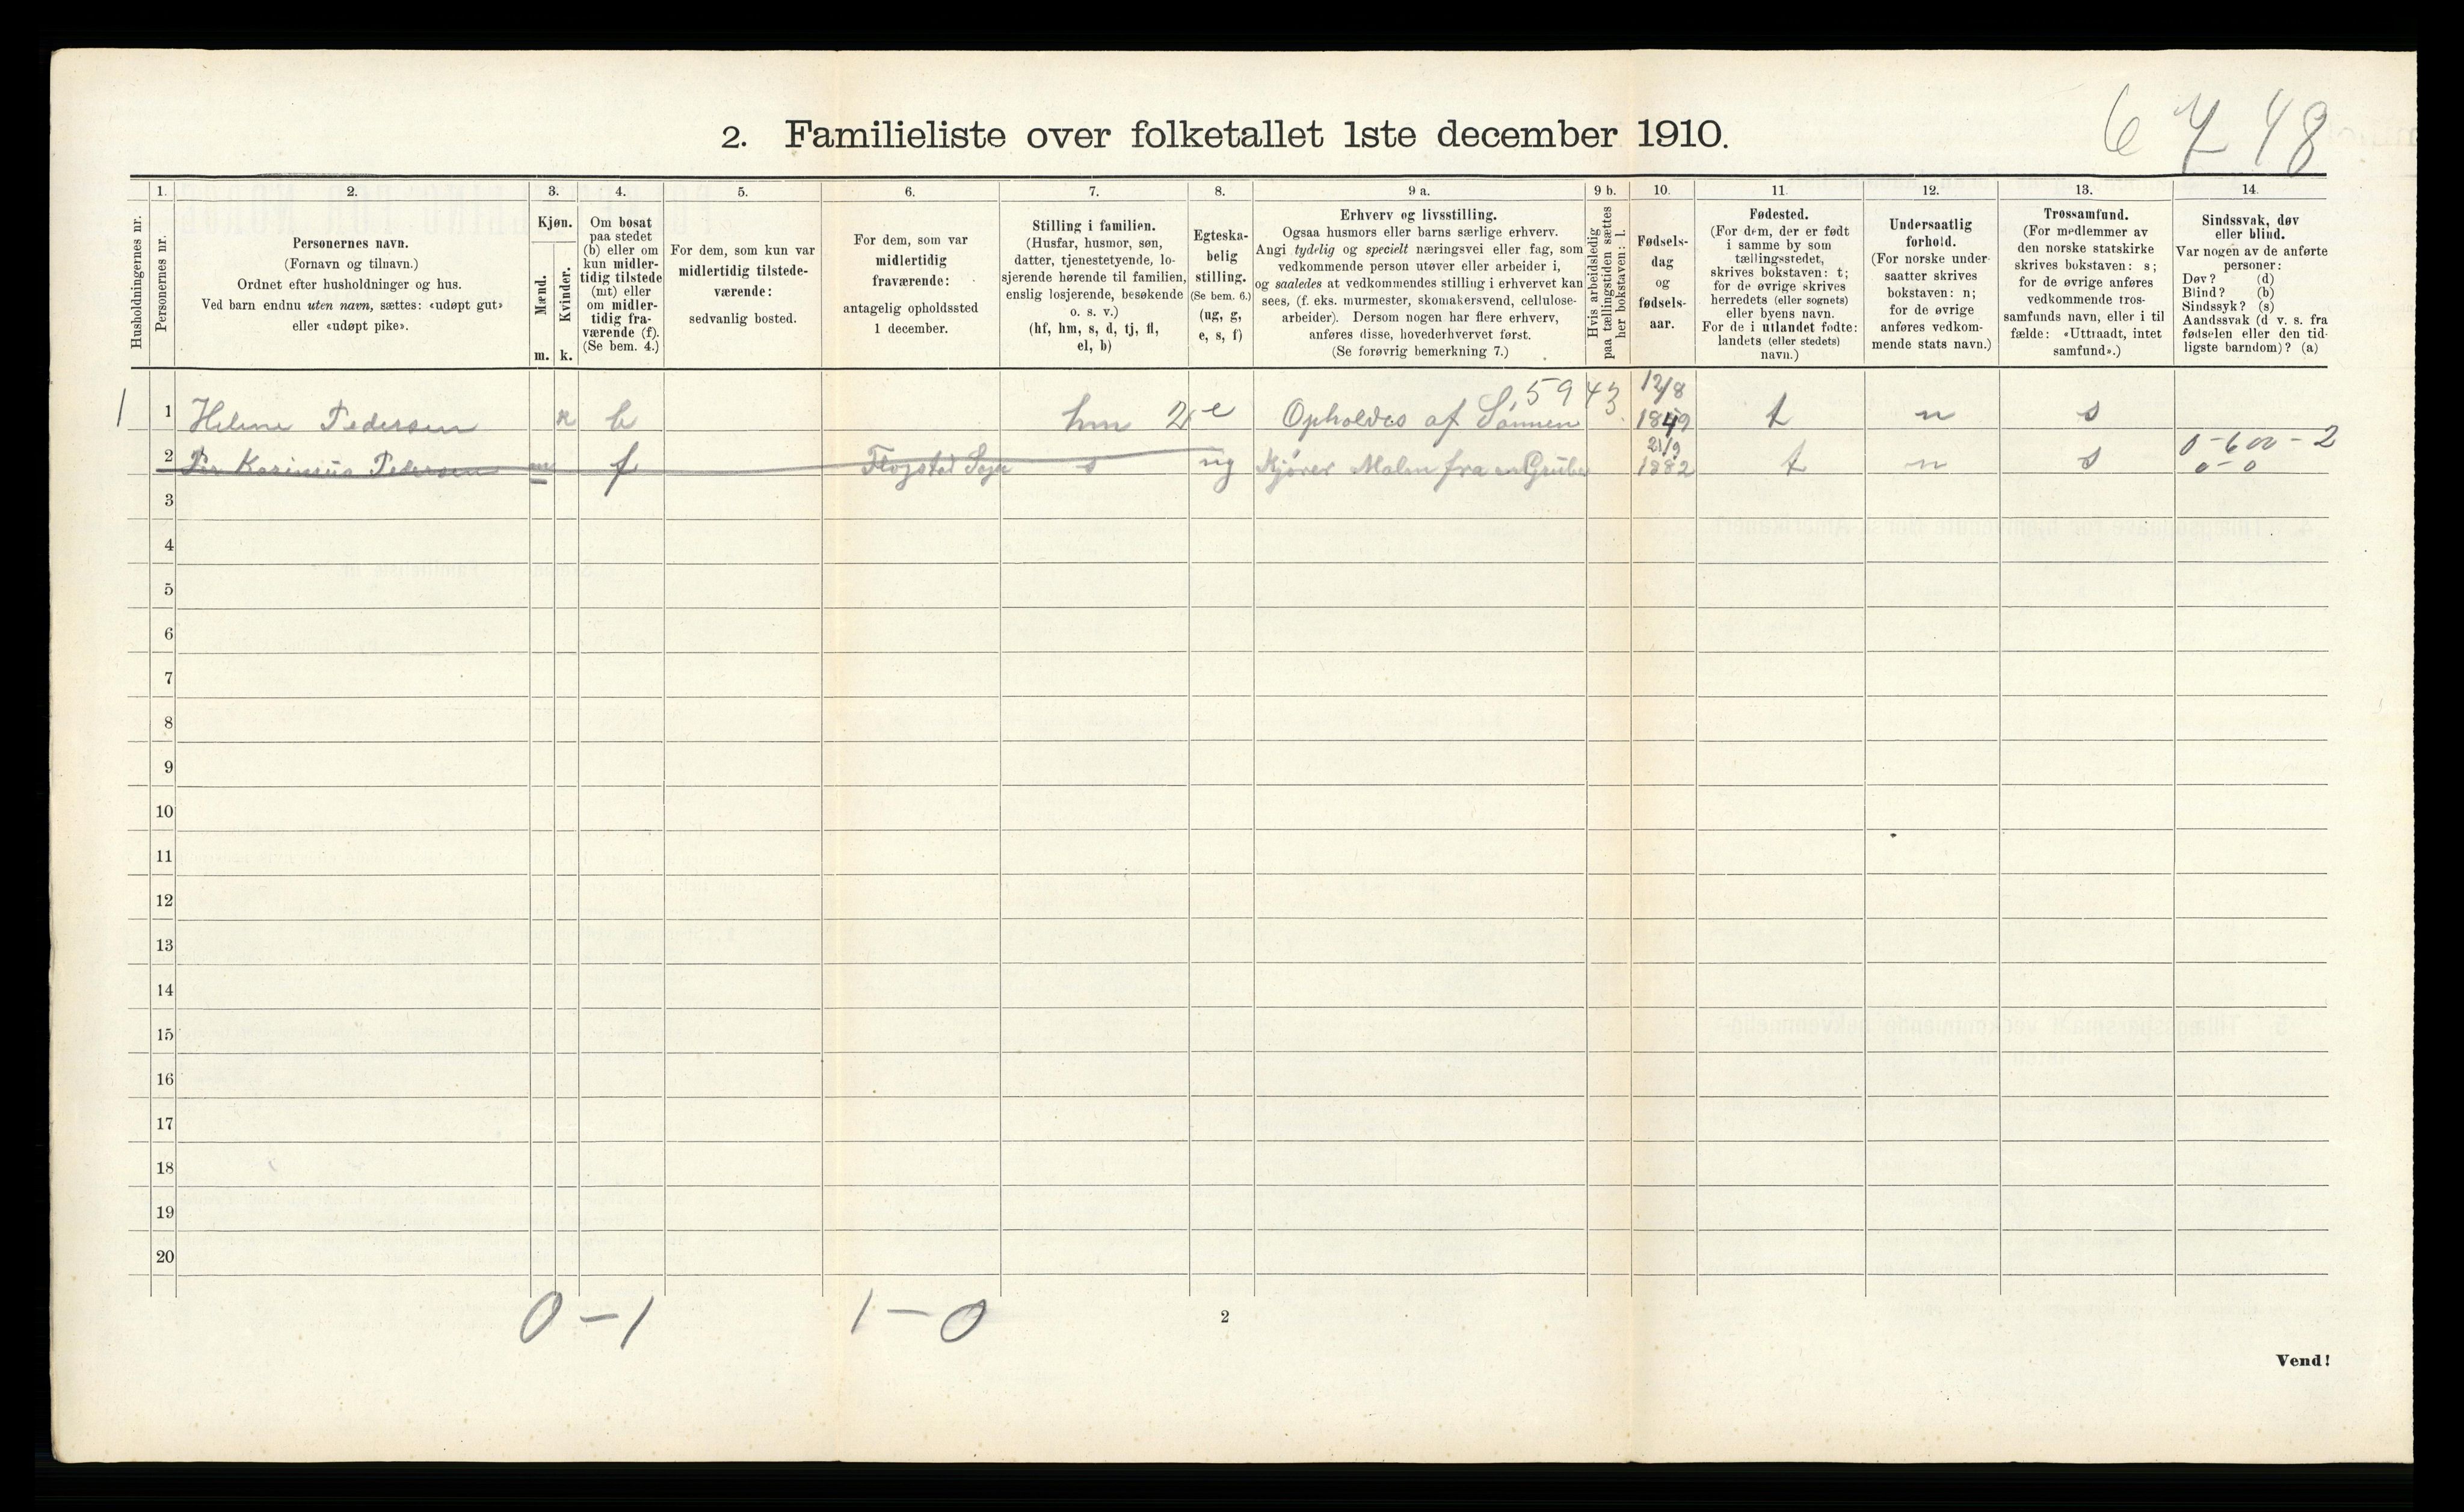 2. Familieliste over folketallet 1ste december 1910.
6 7 48
1.
2.
3.
4.
5.
6.
7.
8.
9 a.
9 b.
10.
11.
12.
13.
14.
Husholdningernes nr.
Personernes nr.
Personernes navn.
(Fornavn og tilnavn.)
Ordnet efter husholdninger og hus.
Ved barn endnu uten navn, sættes: «udøpt gut»
eller «udøpt pike».
Kjøn.
Mænd.
Kvinder.
m. k.
Om bosat
paa stedet
(b) eller om
kun midler-
tidig tilstede
(mt) eller
om midler-
tidig fra-
værende (f).
(Se bem. 4.)
For dem, som kun var
midlertidig tilstede-
værende:
sedvanlig bosted.
For dem, som var
midlertidig
fraværende:
antagelig opholdssted
1 december.
Stilling i familien.
(Husfar, husmor, søn,
datter, tjenestetyende, lo-
sjerende hørende til familien,
enslig losjerende, besøkende
o. s. v.)
(hf, hm, s, d, tj, fl,
el, b)
Egteska-
belig
stilling.
(Se bem. 6.)
(ug, g,
e, s, f)
Erhverv og livsstilling.
Ogsaa husmors eller barns særlige erhverv.
Angi tydelig og specielt næringsvei eller fag, som
vedkommende person utøver eller arbeider i,
og saaledes at vedkommendes stilling i erhvervet kan
sees, (f. eks. murmester, skomakersvend, cellulose-
arbeider). Dersom nogen har flere erhverv,
anføres disse, hovederhvervet først.
(Se forøvrig bemerkning 7.)
Hvis arbeidsledig
paa tællingstiden sættes
her bokstaven: l.
Fødsels-
dag
og
fødsels-
aar.
Fødested.
(For dem, der er født
i samme by som
tællingsstedet,
skrives bokstaven: t;
for de øvrige skrives
herredets (eller sognets)
eller byens navn.
For de i utlandet fødte:
landets (eller stedets)
navn.)
Undersaatlig
forhold.
(For norske under-
saatter skrives
bokstaven: n;
for de øvrige
anføres vedkom-
mende stats navn.)
Trossamfund.
(For medlemmer av
den norske statskirke
skrives bokstaven: s;
for de øvrige anføres
vedkommende tros-
samfunds navn, eller i til
fælde: «Uttraadt, intet
samfund».)
Sindssvak, døv
eller blind.
Var nogen av de anførte
personer:
Døv? (d)
Blind? (b)
Sindssyk? (s)
Aandssvak (d v. s. fra
fødselen eller den tid-
ligste barndom)? (a)
5943 12/8
1 1 Helene Pedersen k b hm 2 e Opholdes af Sønnen 1849 t n s
21/9 0-600-2
2 Per Karinius Pedersen m f Flogstad Sogn s ug Kjører Malm fra en Grube 1882 t n s 0-0
3
4
5
6
7
8
9
10
11
12
13
14
15
16
17
18
19
20
0-1 1-0
2
Vend!